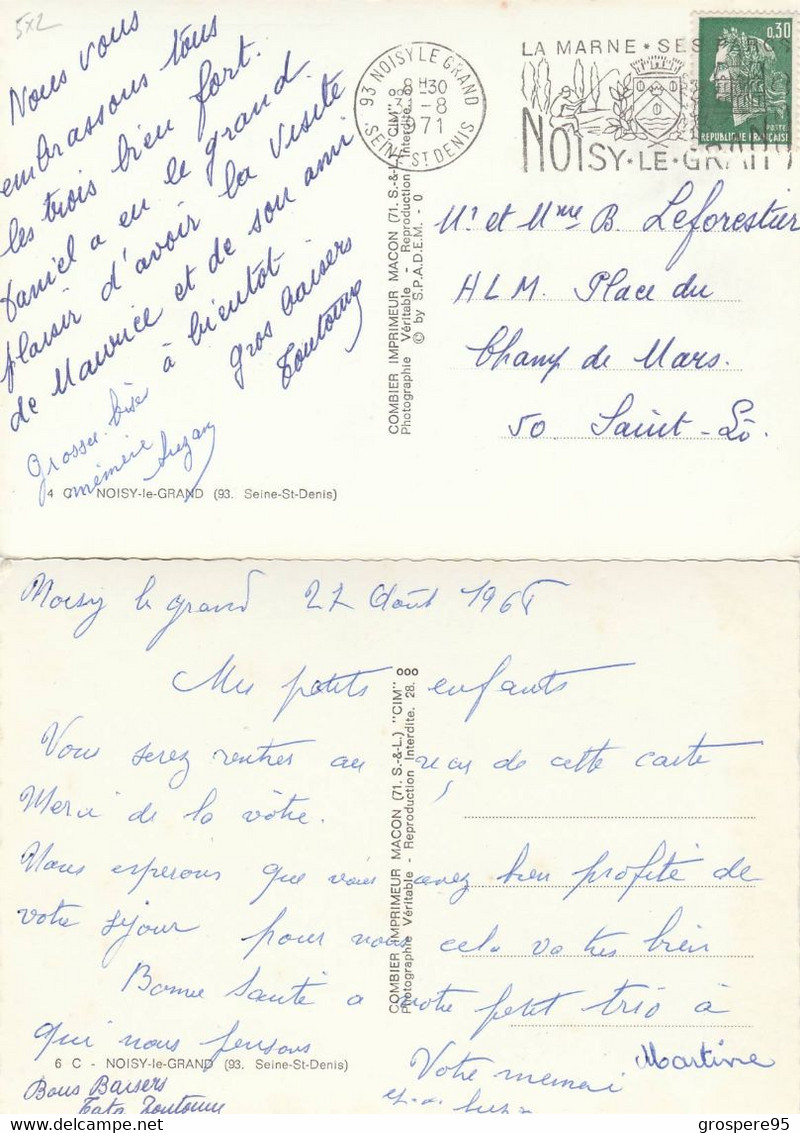 5x2
Nous vous
embrassons tous
les trois bien fort.
Daniel a eu le grand
plaisir d'avoir la visite
de Maurice et de son ami
à bientôt
gros baisers
Toutoune
Grosses bises
mémère Suzan
4 C - NOISY-le-GRAND (93. Seine-St-Denis)
COMBIER IMPRIMEUR MACON (71. S.-&-L.) "CIM"
Photographie Véritable - Reproduction Interdite
© by S.P.A.D.E.M. - 0
93 NOISY LE GRAND
8H30
-8
1971
SEINE-ST-DENIS
LA MARNE • SES PARCS
NOISY•LE•GRAND
0,30
POSTES
REPUBLIQUE FRANÇAISE
Mr et Mme B. Leforestier
HLM. Place du
Champ de Mars.
50 Saint-Lô.
Noisy le grand 27 Août 1968
Mes petits enfants
Vous serez rentres au reçu de cette carte
Merci de la vôtre.
Nous esperons que vous avez bien profité de
votre séjour pour nous cela va tres bien
Bonne Santé a votre petit trio à
qui nous pensons
COMBIER IMPRIMEUR MACON (71. S.-&-L.) "CIM"
Photographie Véritable - Reproduction Interdite. 28.
6 C - NOISY-le-GRAND (93. Seine-St-Denis)
Bons Baisers
Tata Toutoune
Votre memere
Martine
grospere95